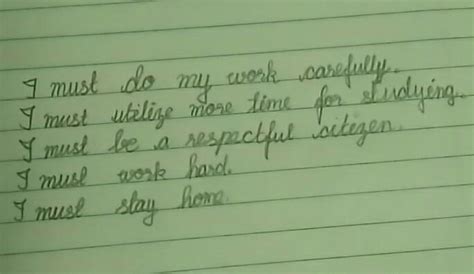 I must do my work carefully.
I must utilize more time for studying.
I must be a respectful citizen.
I must work hard.
I must stay home.